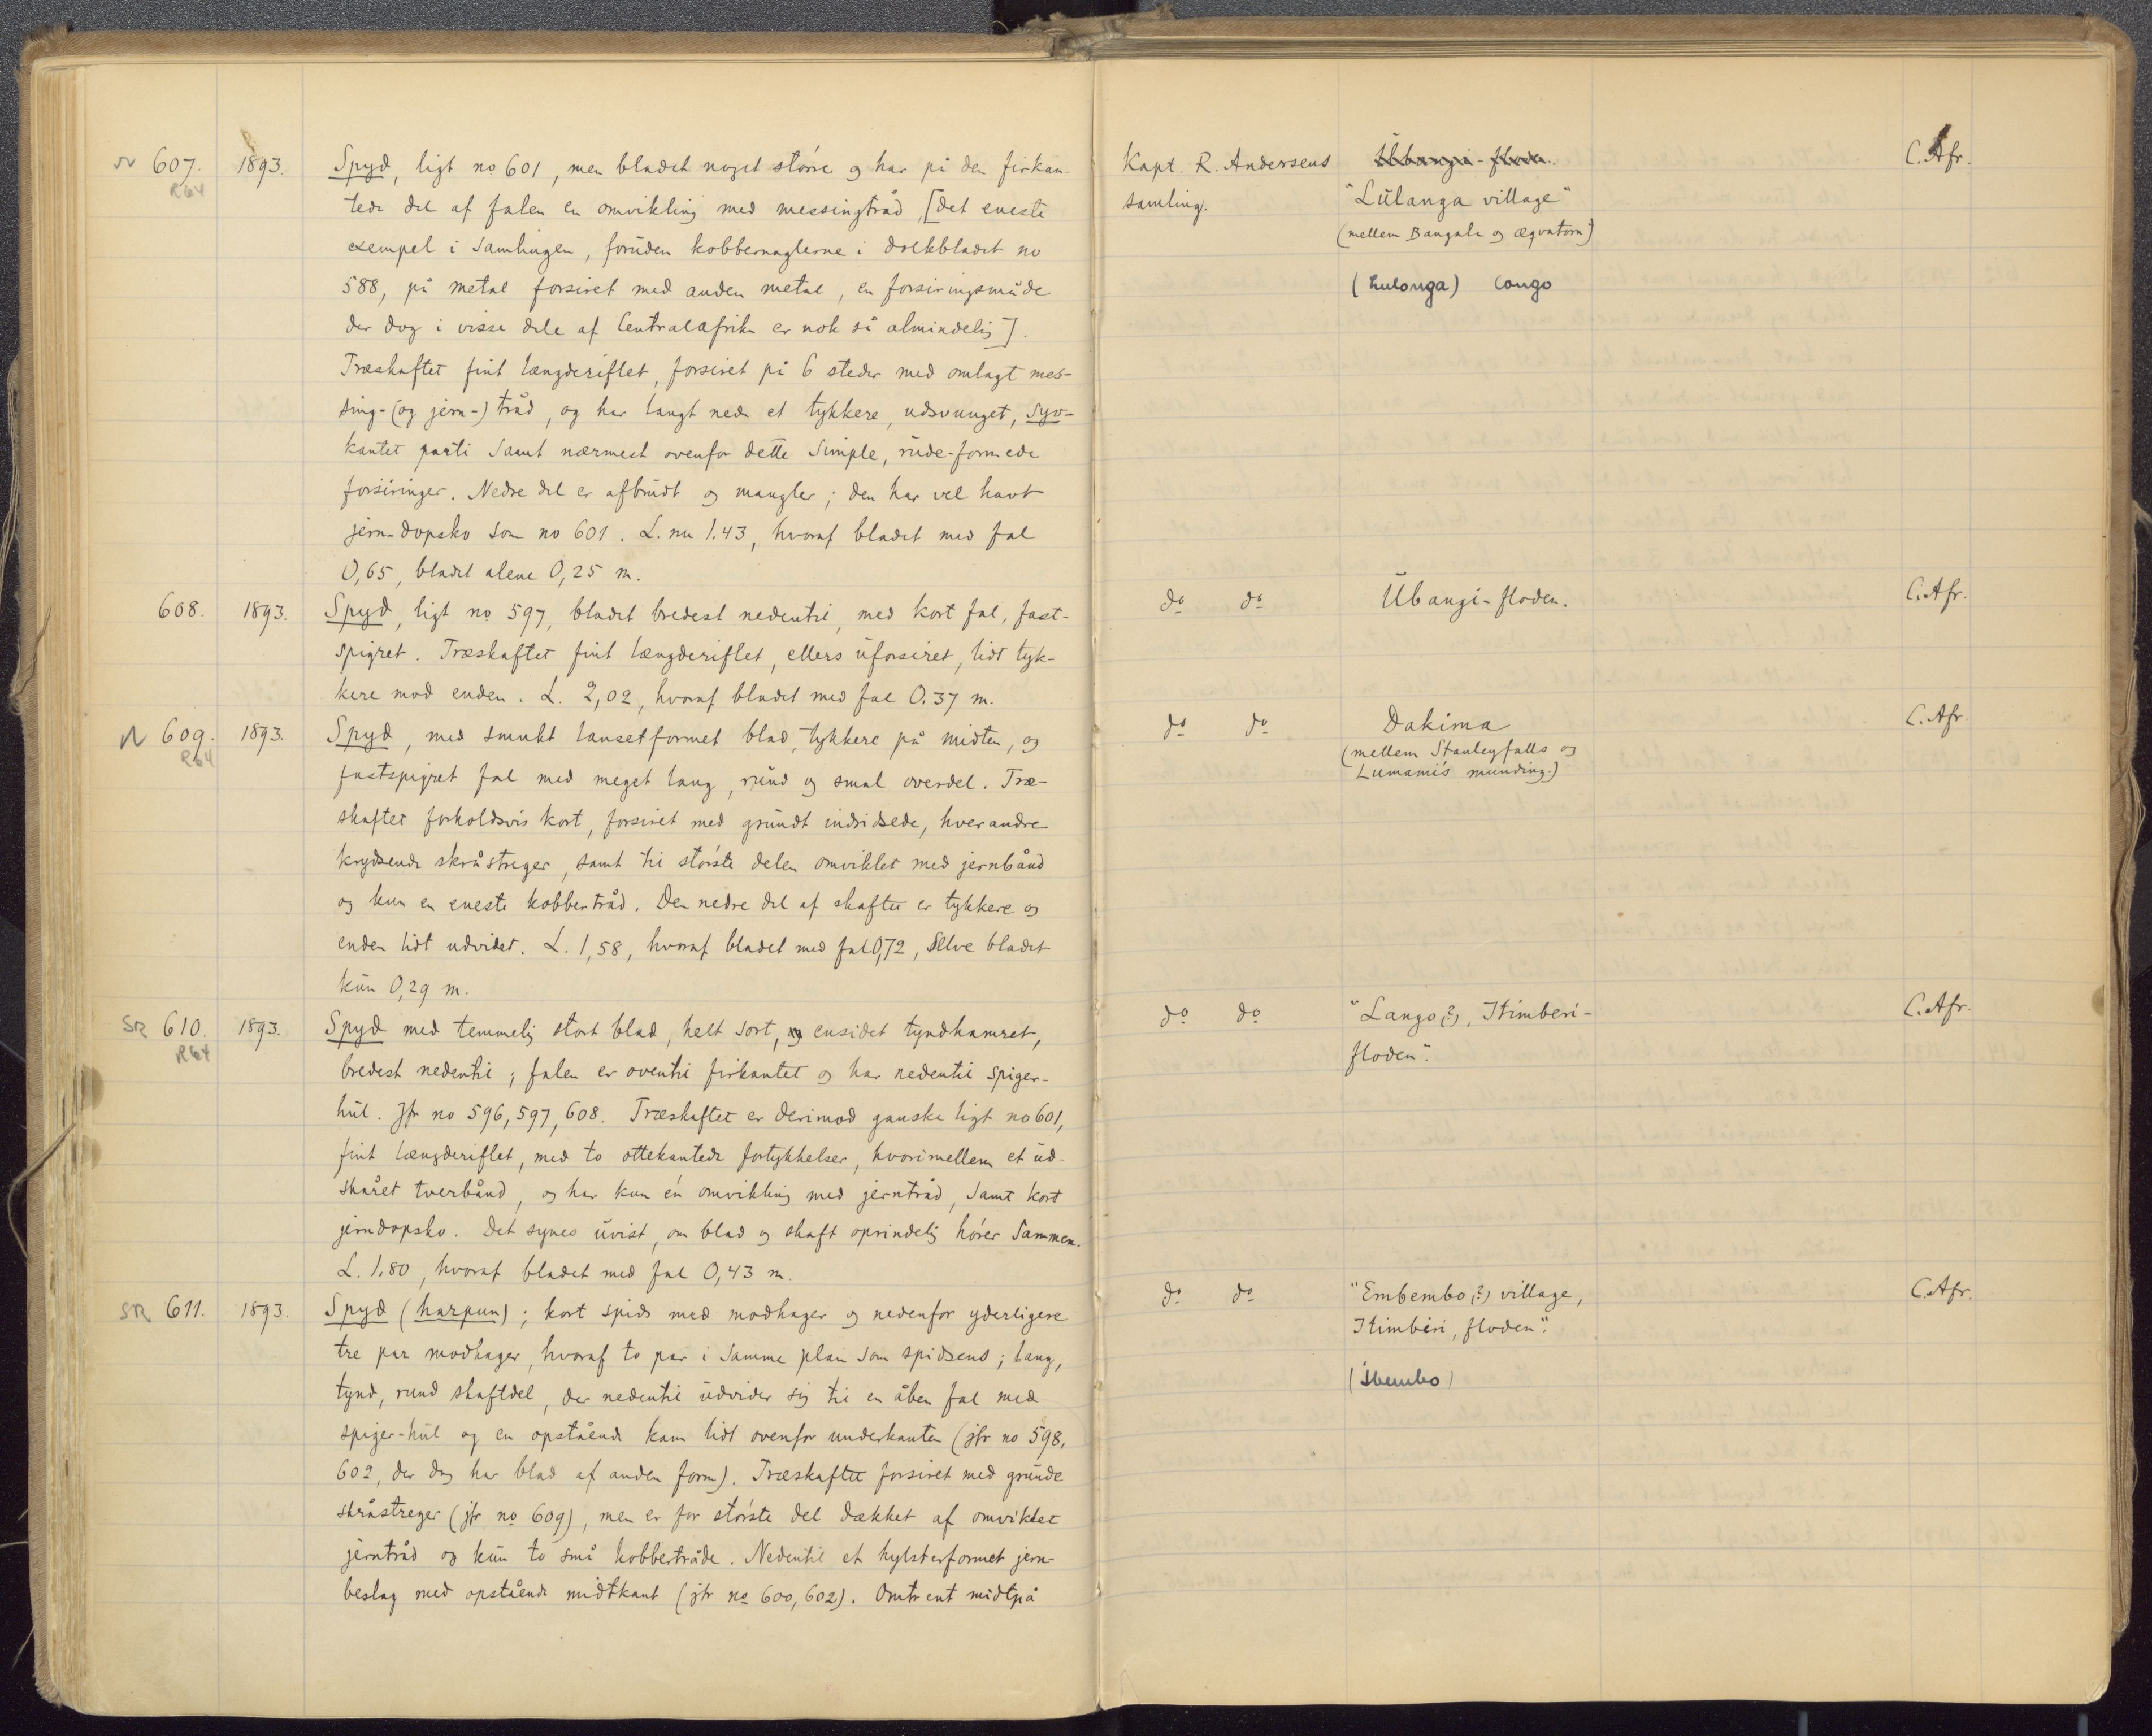 N 607. 1893. Spyd, ligt no 601, men bladet noget større og har på den firkan-
R64
tede del af falen en omvikling med messingtråd, [det eneste
exempel i samlingen, foruden kobbernaglerne i dolkbladet no
588, på metal forsiret med anden metal, en forsiringsmåde
der dog i visse dele af Centralafrika er nok så almindelig].
Træskaftet fint længderiflet, forsiret på 6 steder med omlagt mes-
sing- (og jern-) tråd, og har langt nede et tykkere, udsvunget, syv-
kantet parti samt nærmest ovenfor dette simple, rude-formede
forsiringer. Nedre del er afbrudt og mangler; den har vel havt
jern-dopsko som no 601. L. nu 1.43, hvoraf bladet med fal
0,65, bladet alene 0,25 m.
Kapt. R. Andersens Ubangi-floden. C. Afr.
samling. "Lulanga village"
(mellem Bangala og æqvatorn)
(Lulonga) Congo
608. 1893. Spyd, ligt no 597, bladet bredest nedentil, med kort fal, fast-
spigret. Træskaftet fint længderiflet, ellers uforsiret, lidt tyk-
kere mod enden. L. 2,02, hvoraf bladet med fal 0.37 m.
do do Ubangi-floden. C. Afr.
N 609. 1893. Spyd, med smukt lansetformet blad, tykkere på midten, og
R64
fastspigret fal med meget lang, rund og smal overdel. Træ-
skaftet forholdsvis kort, forsiret med grundt indridsede, hverandre
krydsende skråstreger, samt til største delen omviklet med jernbånd
og kun en eneste kobbertråd. Den nedre del af skaftet er tykkere og
enden lidt udvidet. L. 1,58, hvoraf bladet med fal 0,72, selve bladet
kun 0,29 m.
do do Dakima C. Afr.
(mellem Stanleyfalls og
Lumami's munding.)
SR 610. 1893. Spyd med temmelig stort blad, helt sort, og ensidet tyndhamret,
R64
bredest nedentil; falen er oventil firkantet og har nedentil spiger-
hul. Jfr no 596, 597, 608. Træskaftet er derimod ganske ligt no 601,
fint længderiflet, med to ottekantede fortykkelser, hvorimellem et ud-
skåret tverbånd, og har kun én omvikling med jerntråd, samt kort
jerndopsko. Det synes uvist, om blad og skaft oprindelig hører sammen.
L. 1.80, hvoraf bladet med fal 0,43 m.
do do "Lango(?), Itimberi- C. Afr.
floden".
SR 611. 1893. Spyd (harpun); kort spids med modhager og nedenfor yderligere
tre par modhager, hvoraf to par i samme plan som spidsens; lang,
tynd, rund skaftdel, der nedentil udvider sig til en åben fal med
spiger-hul og en opstående kam lidt ovenfor underkanten (jfr no 598,
602, der dog har blad af anden form). Træskaftet forsiret med grunde
skråstreger (jfr no 609), men er for største del dækket af omviklet
jerntråd og kun to små kobbertråde. Nedentil et hylsterformet jern-
beslag med opstående midtkant (jfr no 600, 602). Omtrent midtpå
do do "Embembo(?) village, C. Afr.
Itimbiri, floden".
(Ibembo)